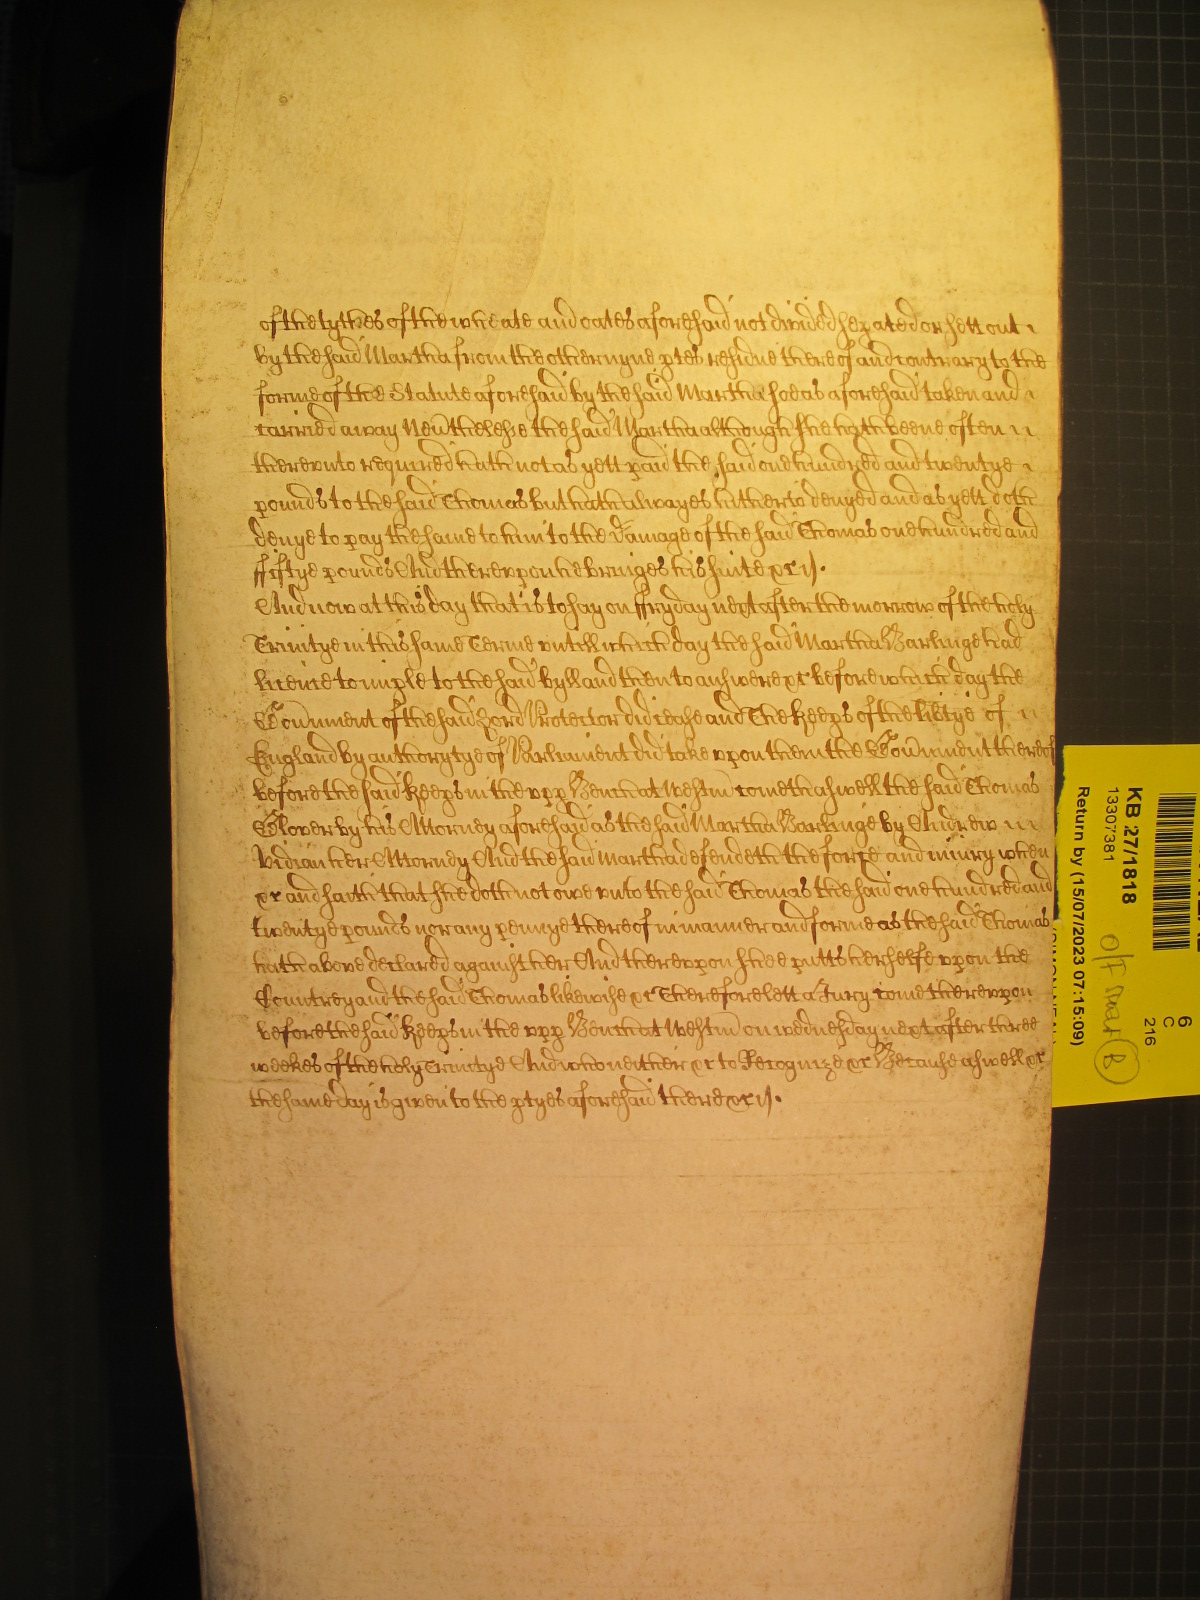 of the tythes of the wheate and oates aforesaid not divided sepated or sett out
by the said Martha from the other nyne ptes residue thereof and contrary to the
forme of the Statute aforesaid by the said Martha soe as aforesaid taken and
carried away Neutheleste the said Martha although she hath beene often
therevnto required hath not as yett paid the said one hundred and twentye
pounds to the said Thomas but hath alwayes hitherto denyed and as yett doth
denye to pay the same to him to the damage of the said Thomas one hundred and
ffiftye pounds And therevpon he bringes his suite &c
And now at this day that is to say on ffryday next after the morrow of the holy
Trinitye in this same Terme vntill which day the said Martha Barlinge had
licence to imple to the said byll and then to answere &c before which day the
Gouument of the said Lord Protector did cease and The Keeps of the libtye of
England by authorytye of Parliament did take vpon them the Gouument thereof
before the said Keeps in the vpp Bench at Westm cometh aswell the said Thomas
Glover by his Attorney aforesaid as the said Martha Barlinge by Andrew
Vidian her Attorney And the said Martha defendeth the force and iniury when
&c and saith that she doth not owe vnto the said Thomas the said one hundred and
twentye pounds nor any pennye thereof in manner and forme as the said Thomas
hath above declared against her And therevpon shee putts herselfe vpon the
Countrey and the said Thomas likewise &c Therefore lett a Jury come therevpon
before the said Keeps in the vpp Bench at Westm on wednesday next after three
weekes of the holy Trinitye And who neither &c to Recognize &c Because aswell &c
the same day is given to the ptyes aforesaid there &c
KB 27/1818
13307381
Return by (15/07/2023 07:15:09)
6
C
216
B